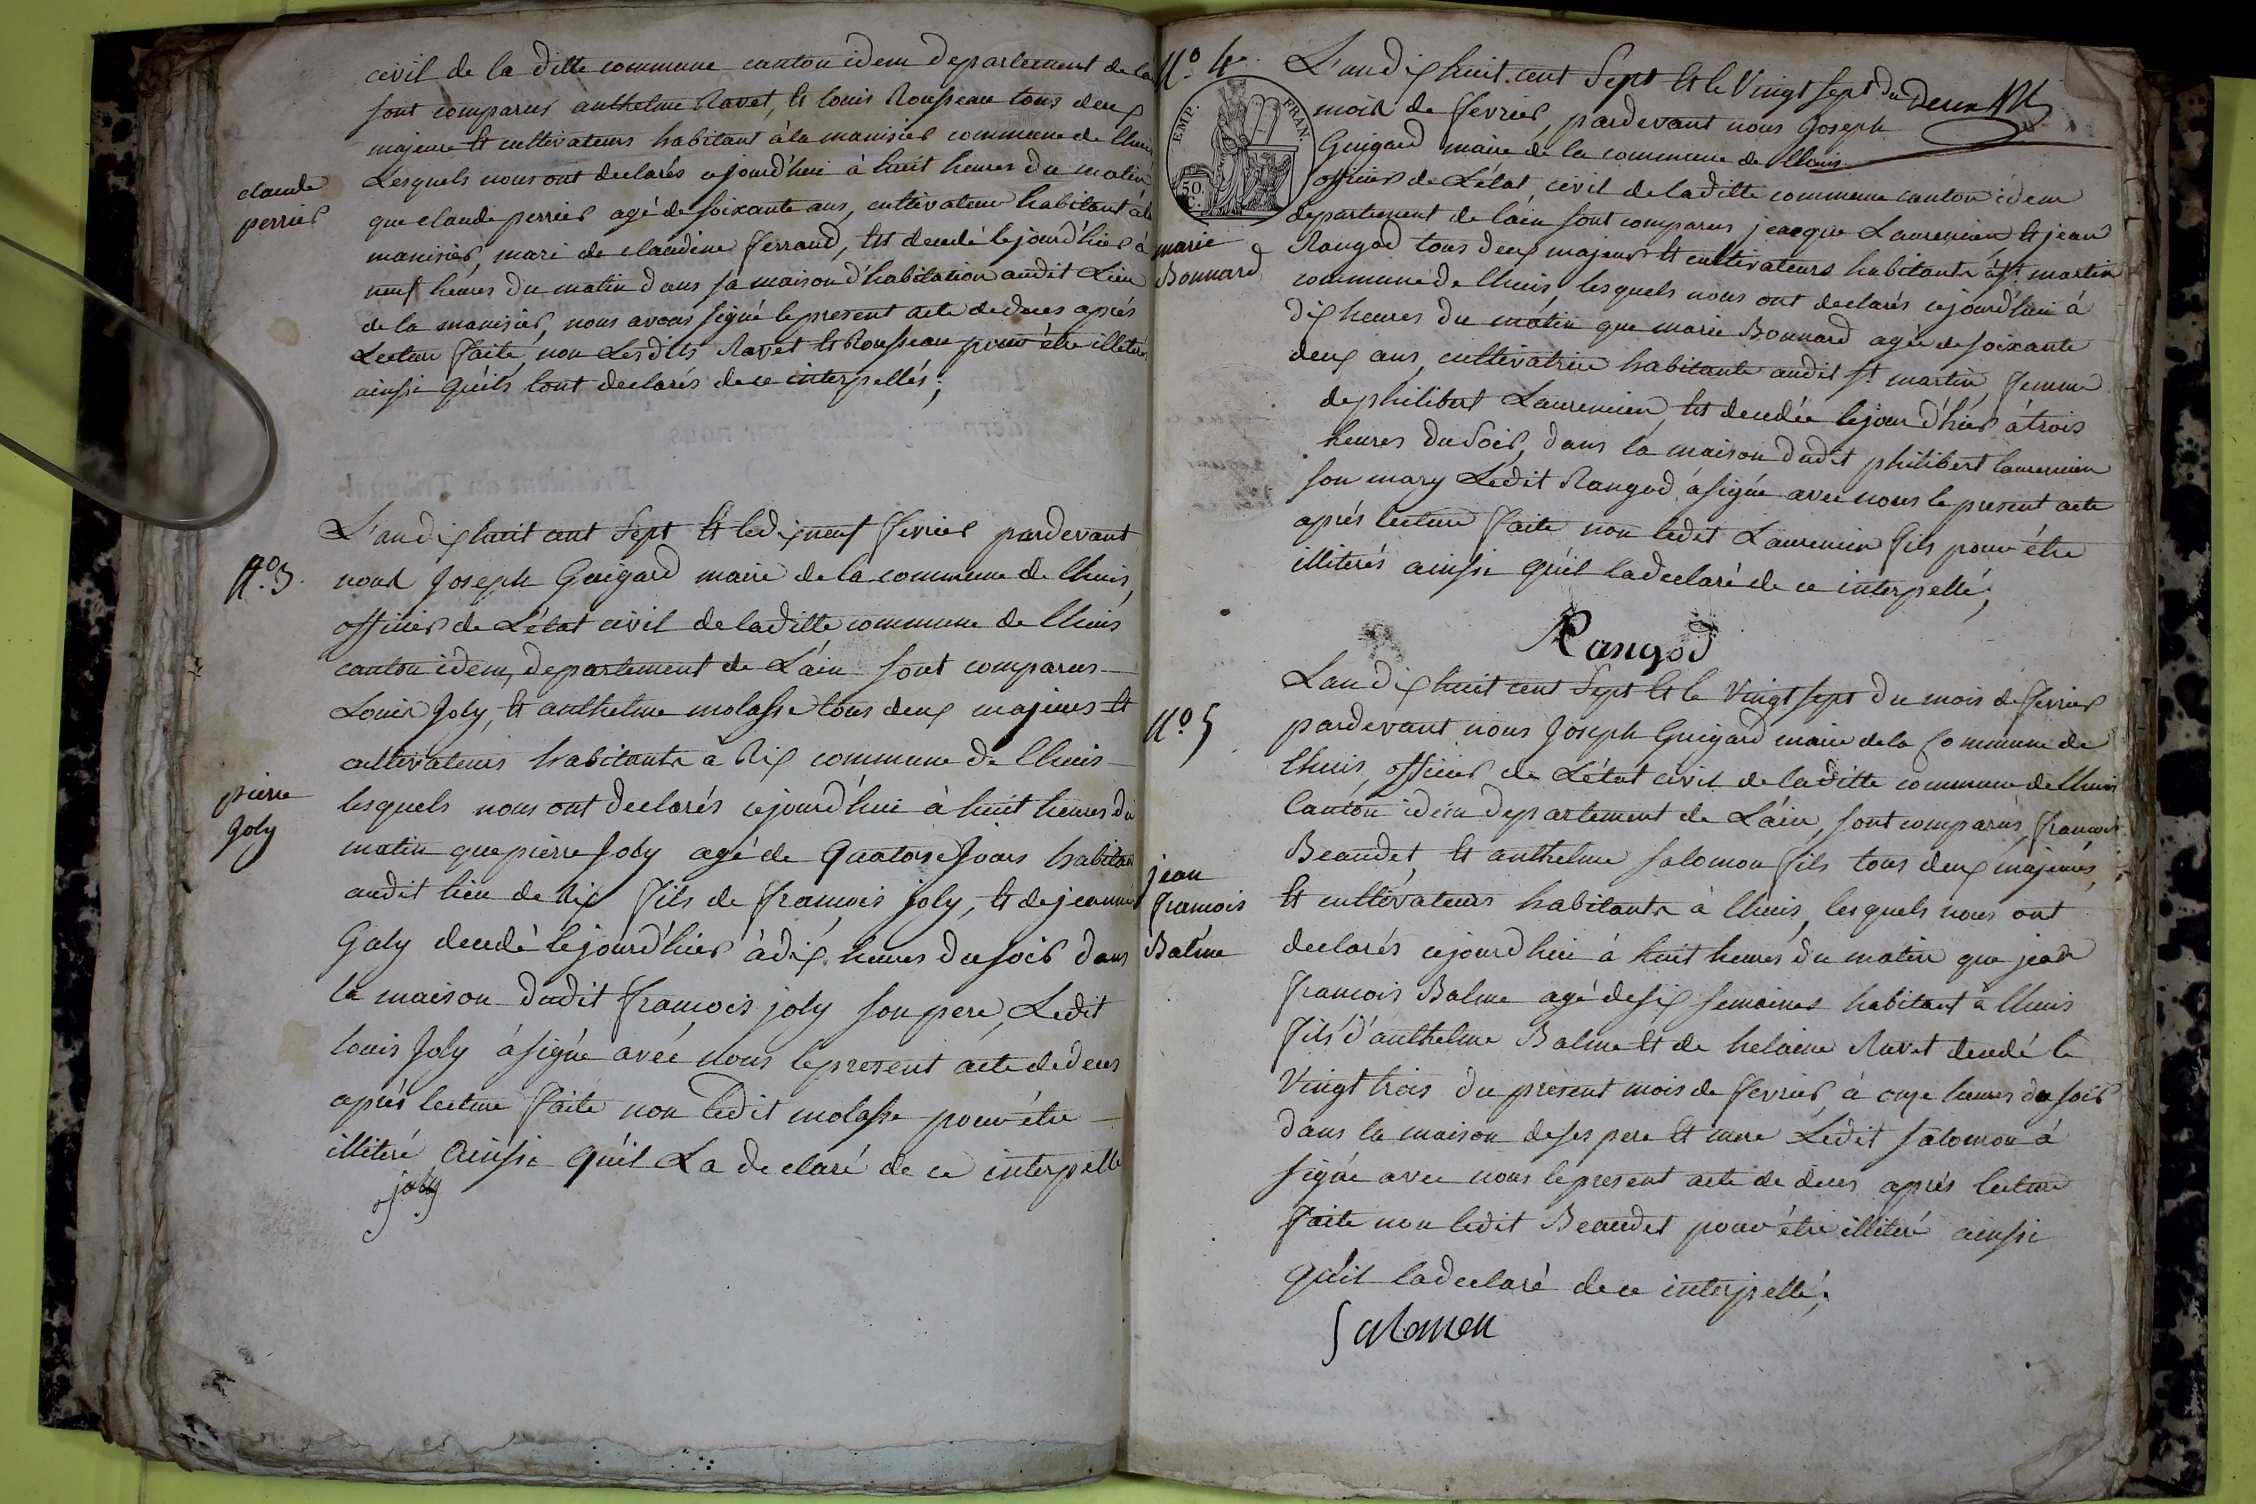 civil de la ditte commune canton idem departement de la
sont comparus anthelme Ravet, et louis Rousseau tous deux
majeurs et cultivateurs habitant à la manisier commune de lhuis
Lesquels nous ont declarés cejourd'hui à huit heures du matin
claude
perrier
que claude perrier agé de soixante ans, cultivateur habitant à la
manisier, mari de claudine ferrand, est decedé le jour d'hier à
neuf heures du matin dans sa maison d'habitation audit Lieu
de la manisier, nous avons signé le present acte de deces aprés
Lecture faite, non Lesdits Ravet et Rousseau pour étre illiterés
ainsi qu'ils l'ont declarés de ce interpellés;
N.o 3.
L'an dix huit cent sept et le dix neuf fevrier pardevant
nous Joseph Guigard maire de la commune de lhuis,
officier de L'état civil de laditte commune de lhuis
canton idem, departement de L'ain sont comparus
Louis Joly, et anthelme molasse tous deux majeurs et
cultivateurs habitants à Rix commune de lhuis
pierre
Joly
lesquels nous ont declarés cejourd'hui à huit heures du
matin que pierre Joly agé de quatorze Jours habitant
audit lieu de Rix fils de françois joly, et de jeanne
Galy decedé le jour d'hier à dix heures du soir dans
la maison dudit françois joly son pere, Ledit
louis Joly à signé avec nous le present acte de deces
aprés lecture faite non ledit molasse pour étre
illiteré ainsi qu'il La declaré de ce interpellé
joly
N.o 4
L'an dix huit cent sept et le vingt sept du
deux
EMP. FRAN.
50. C.
mois de fevrier, pardevant nous Joseph
Guigard maire de la commune de lhuis
officier de L'état civil de laditte commune canton idem
departement de l'ain sont comparus jeacque Laurencien et jean
marie
Bonnard
Rangod tous deux majeurs et cultivateurs habitants à st martin
commune de lhuis, lesquels nous ont declarés cejourd'hui à
dix heures du matin que marie Bonnard agée de soixante
deux ans, cultivatrice habitante audit st martin, femme
de philibert Laurencien, est decedée le jour d'hier à trois
heures du soir, dans la maison dudit philibert laurencien
son mary Ledit Rangod à signé avec nous le present acte
aprés lecture faite non ledit Laurencien fils pour étre
illiterés ainsi qu'il la declaré de ce interpellé;
Rangod
N.o 5
L'an dix huit cent sept et le vingt sept du mois de fevrier
pardevant nous Joseph Guigard maire de la Commune de
lhuis, officier de L'état civil de laditte commune de lhuis
Canton idem departement de L'ain, sont comparus, françois
Beaudet, et anthelme salomon fils tous deux majeurs,
jean
francois
Balme
et cultivateurs habitants à lhuis, lesquels nous ont
declarés cejourdhui à huit heures du matin que jean
francois Balme agé de six semaines habitant à lhuis
fils d'anthelme Balme et de helaine Ravet decedé le
vingt trois du present mois de fevrier, à onze heures du soir
dans la maison de ses pere et mere Ledit salomon à
signé avec nous le present acte de deces aprés lecture
faite non ledit Beaudet pour étre illiteré ainsi
qu'il la declaré de ce interpellé;
Salomon